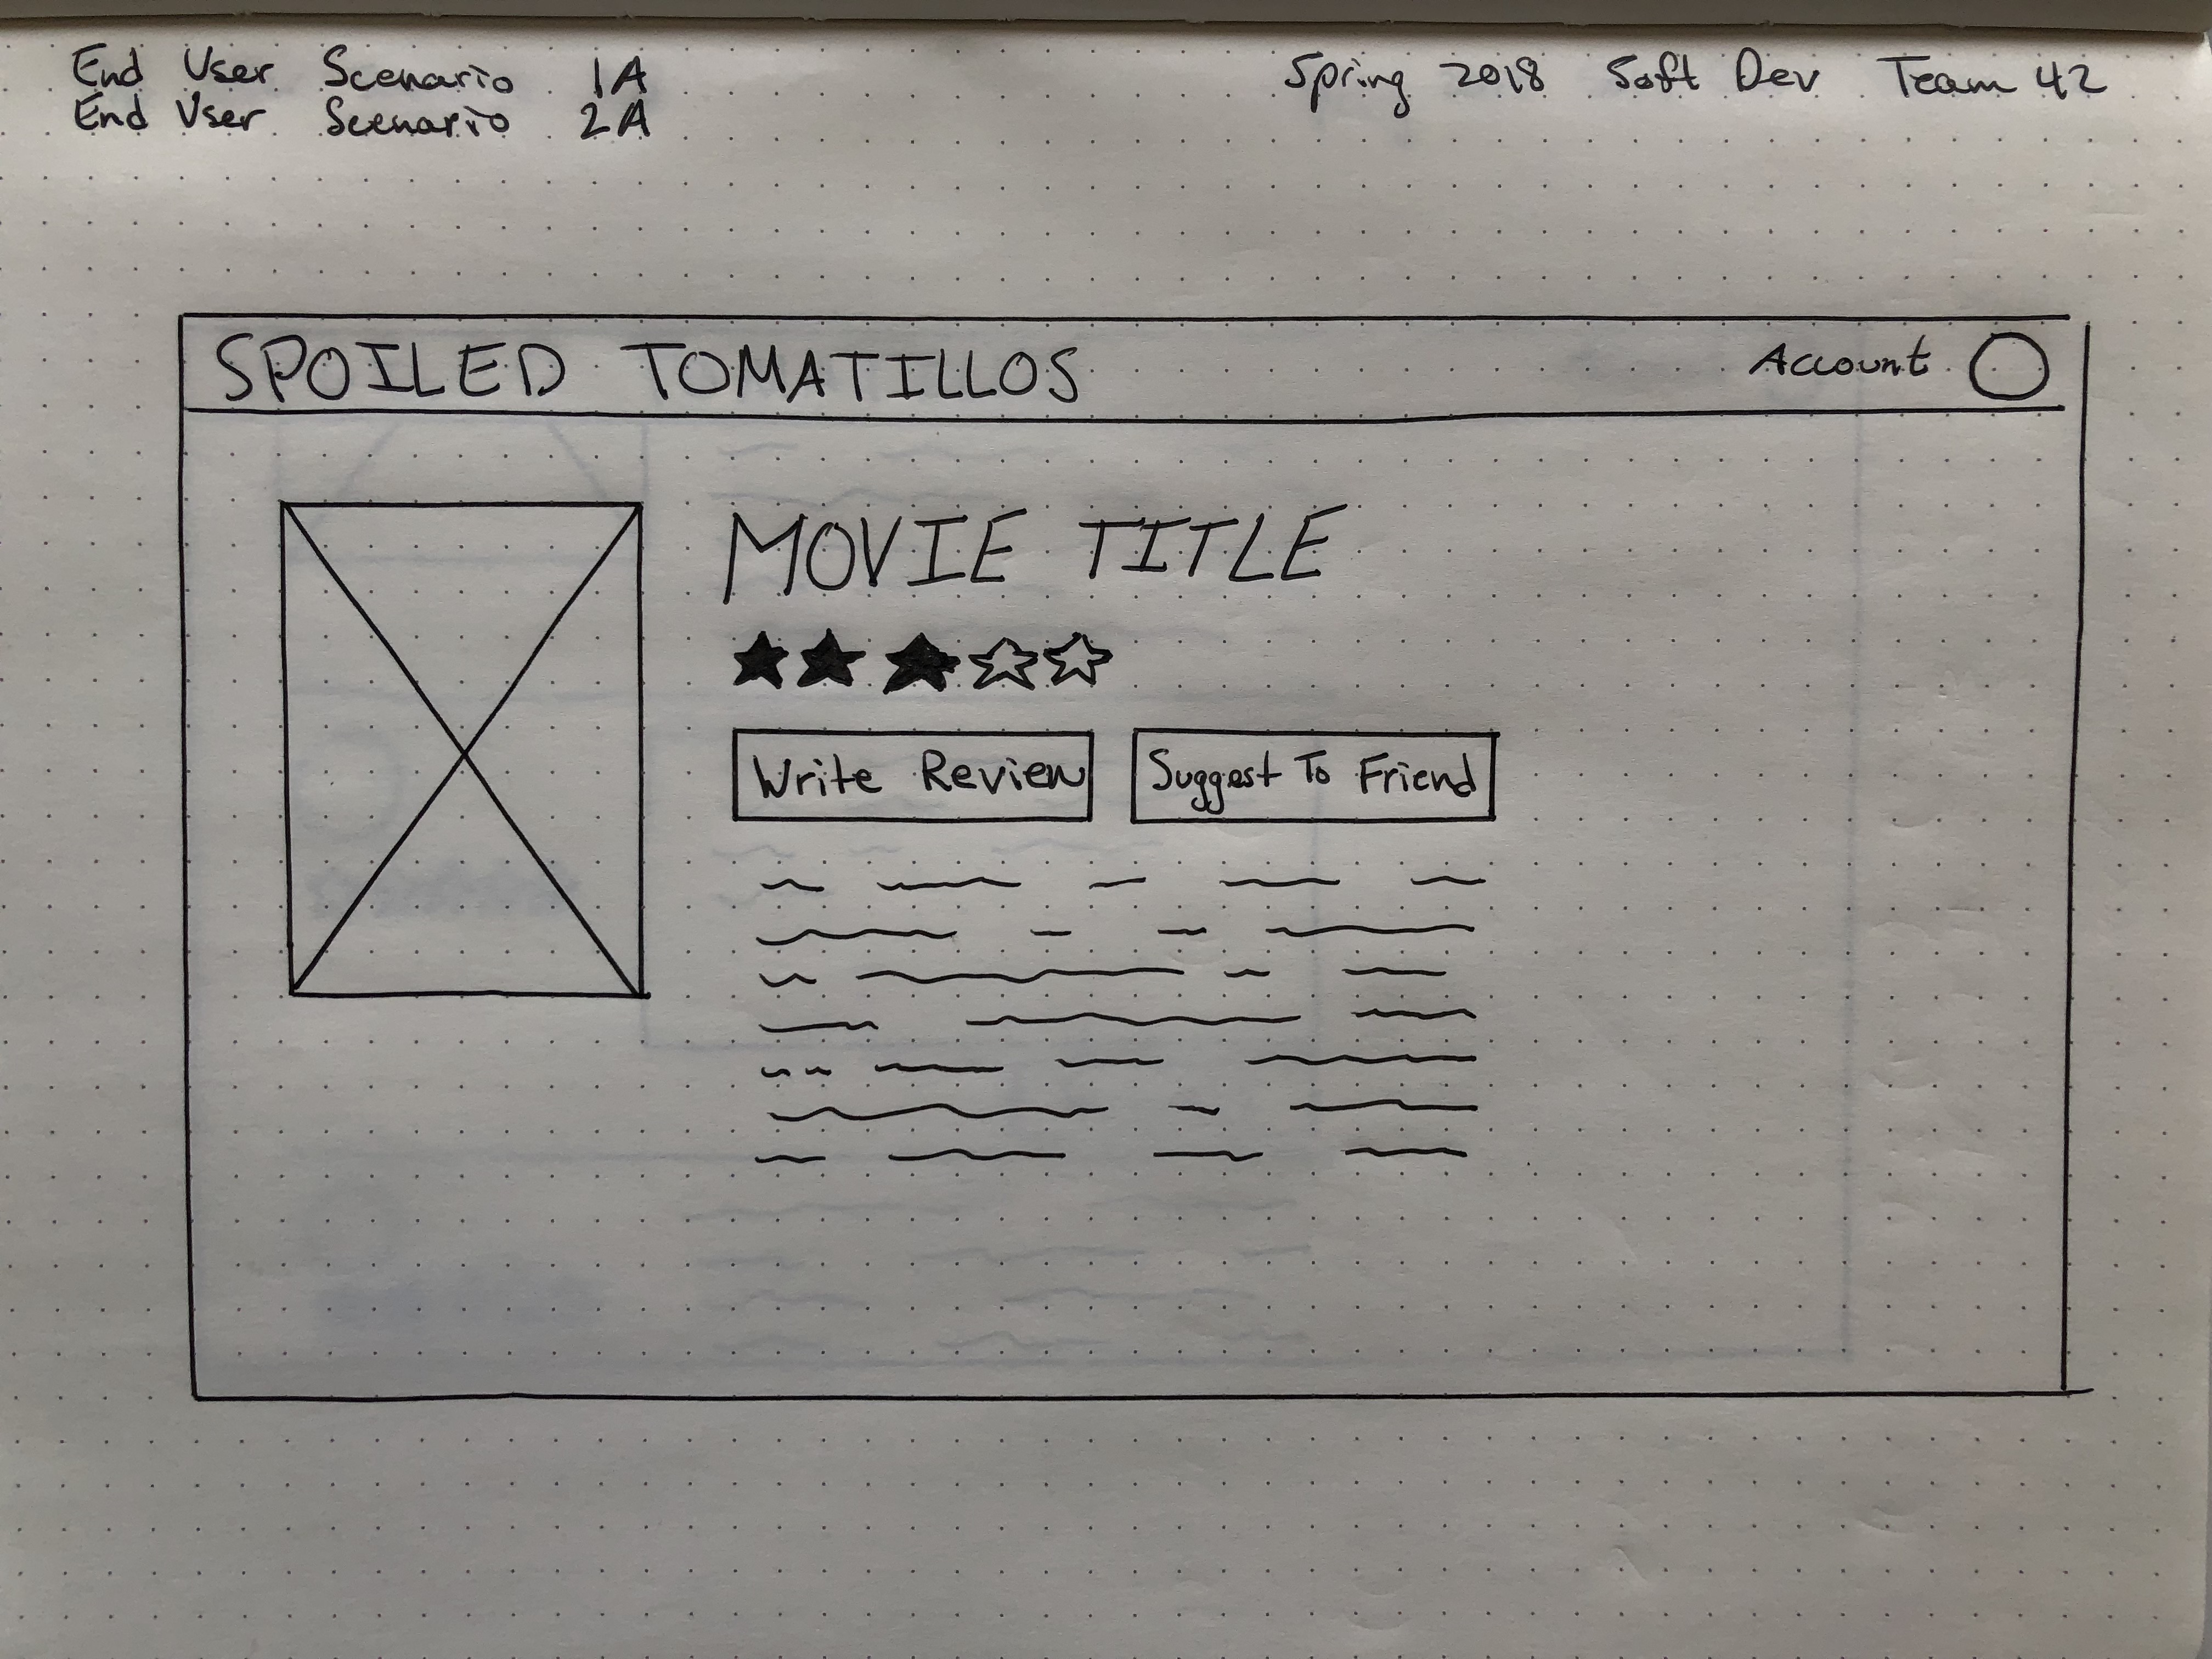 End User Scenario 1A
End User Scenario 2A
Spring 2018 Soft Dev Team 42
SPOILED TOMATILLOS
Account
MOVIE TITLE
Write Review
Suggest To Friend